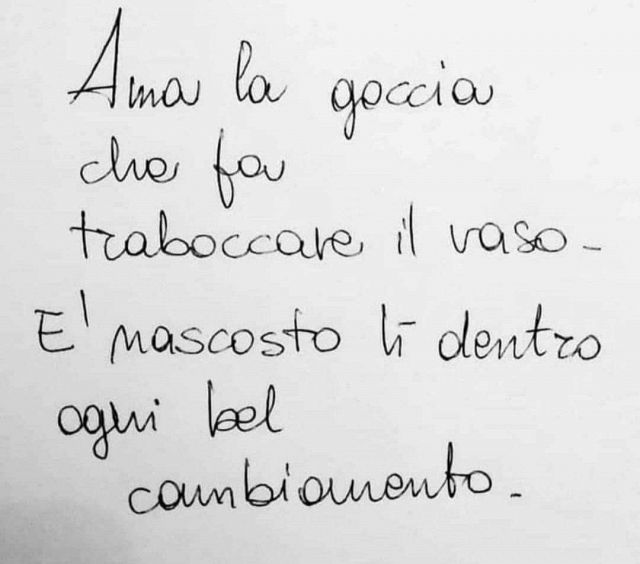 Ama la goccia
che fa
traboccare il vaso -
E' mascosto lì dentro
ogni bel
cambiamento.